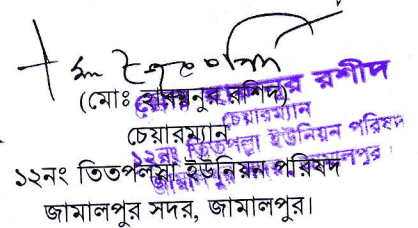 (মোঃ হারুনুর রশিদ)
চেয়ারম্যান
১২নং তিতপল্লা ইউনিয়ন পরিষদ
জামালপুর সদর, জামালপুর।
রশীদ
চেয়ারম্যান
১২নং তিতপল্লা ইউনিয়ন পরিষদ
জামালপুর সদর, জামালপুর।